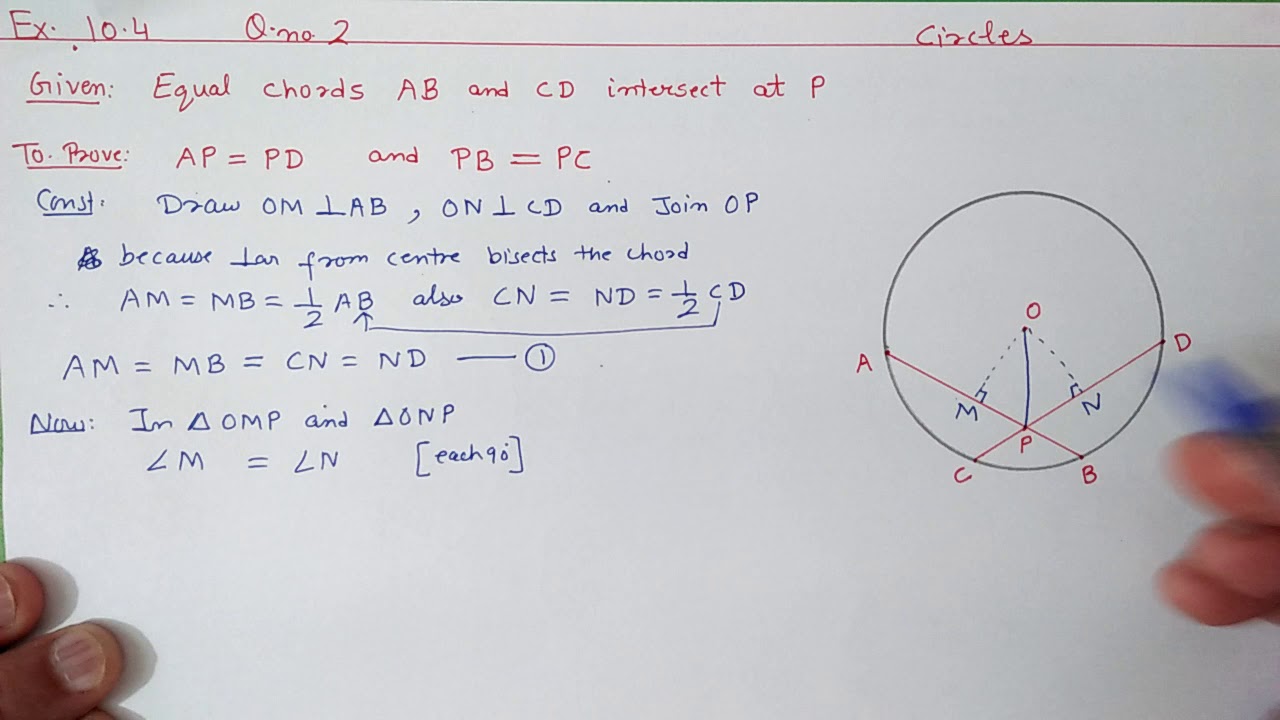 Ex. 10.4 Q.no. 2 Circles
Given: Equal chords AB and CD intersect at P
To Prove: AP = PD and PB = PC
Const: Draw OM ⊥ AB, ON ⊥ CD and Join OP
because ⊥ar from centre bisects the chord
∴ AM = MB = 1/2 AB also CN = ND = 1/2 CD
AM = MB = CN = ND —— ①
Now: In △OMP and △ONP
∠M = ∠N [each 90°]
O
A
D
M
N
P
C
B